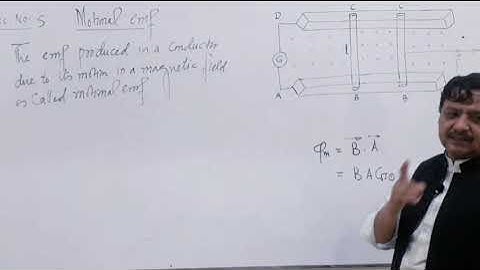 No: 5 Motional emf
The emf produced in a conductor
due to its motion in a magnetic field
is called motional emf
D C C
G l
A B B
φm = B . A
= B A Cosθ